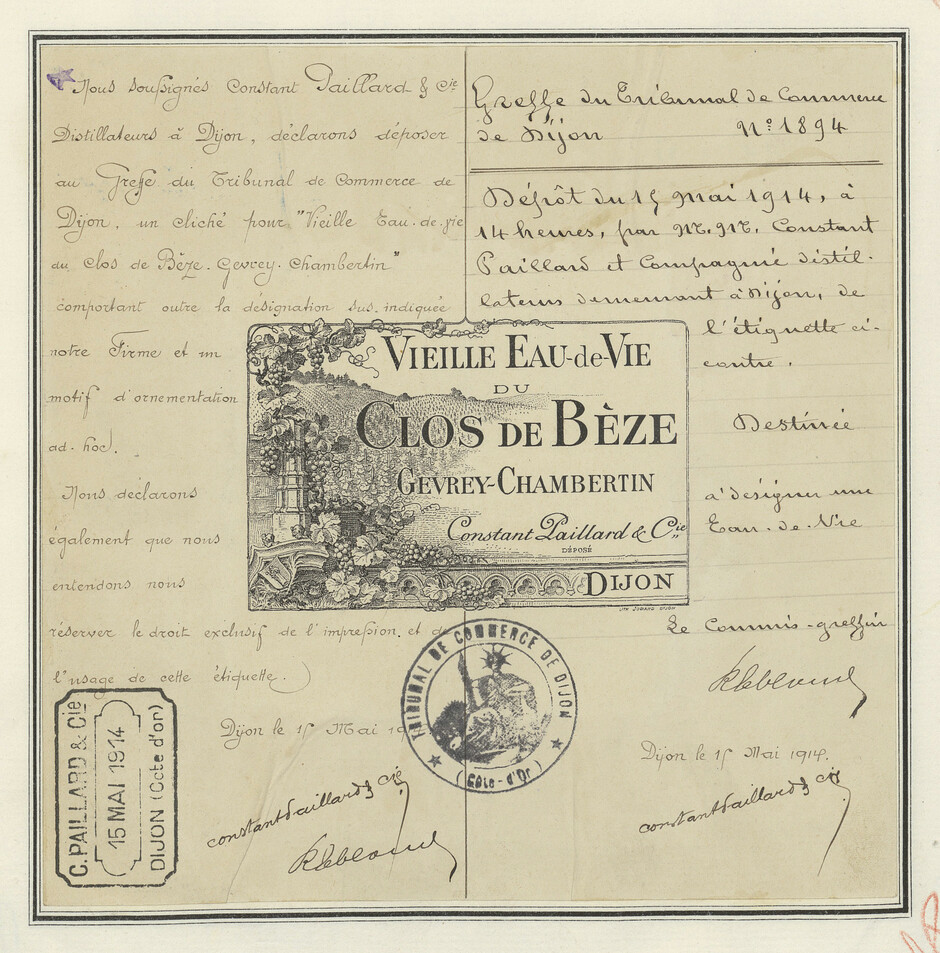 Nous soussignés Constant Paillard & Cie
Distillateurs à Dijon, déclarons déposer
au Greffe du Tribunal de Commerce de
Dijon, un cliché pour "Vieille Eau-de-vie
du Clos de Bèze. Gevrey-Chambertin"
comportant outre la désignation sus-indiquée
notre Firme et un
motif d'ornementation
ad-hoc.
Nous déclarons
également que nous
entendons nous
réserver le droit exclusif de l'impression et de
l'usage de cette étiquette.
Dijon le 15 Mai 19
constant Paillard & Cie
C. PAILLARD & Cie
15 MAI 1914
DIJON (Cote d'or)
VIEILLE EAU-DE-VIE
DU
CLOS DE BÈZE
GEVREY-CHAMBERTIN
Constant Paillard & Cie
DÉPOSÉ
DIJON
TRIBUNAL DE COMMERCE DE DIJON
(Côte-d'Or)
Greffe du Tribunal de Commerce
de Dijon No 1894
Dépôt du 15 Mai 1914, à
14 heures, par M.M. Constant
Paillard et Compagnie distil-
lateurs demeurant à Dijon, de
l'étiquette ci-
contre.
Destinée
à désigner une
Eau-de-Vie
Le Commis-greffier
Dijon le 15 Mai 1914.
constant Paillard & Cie